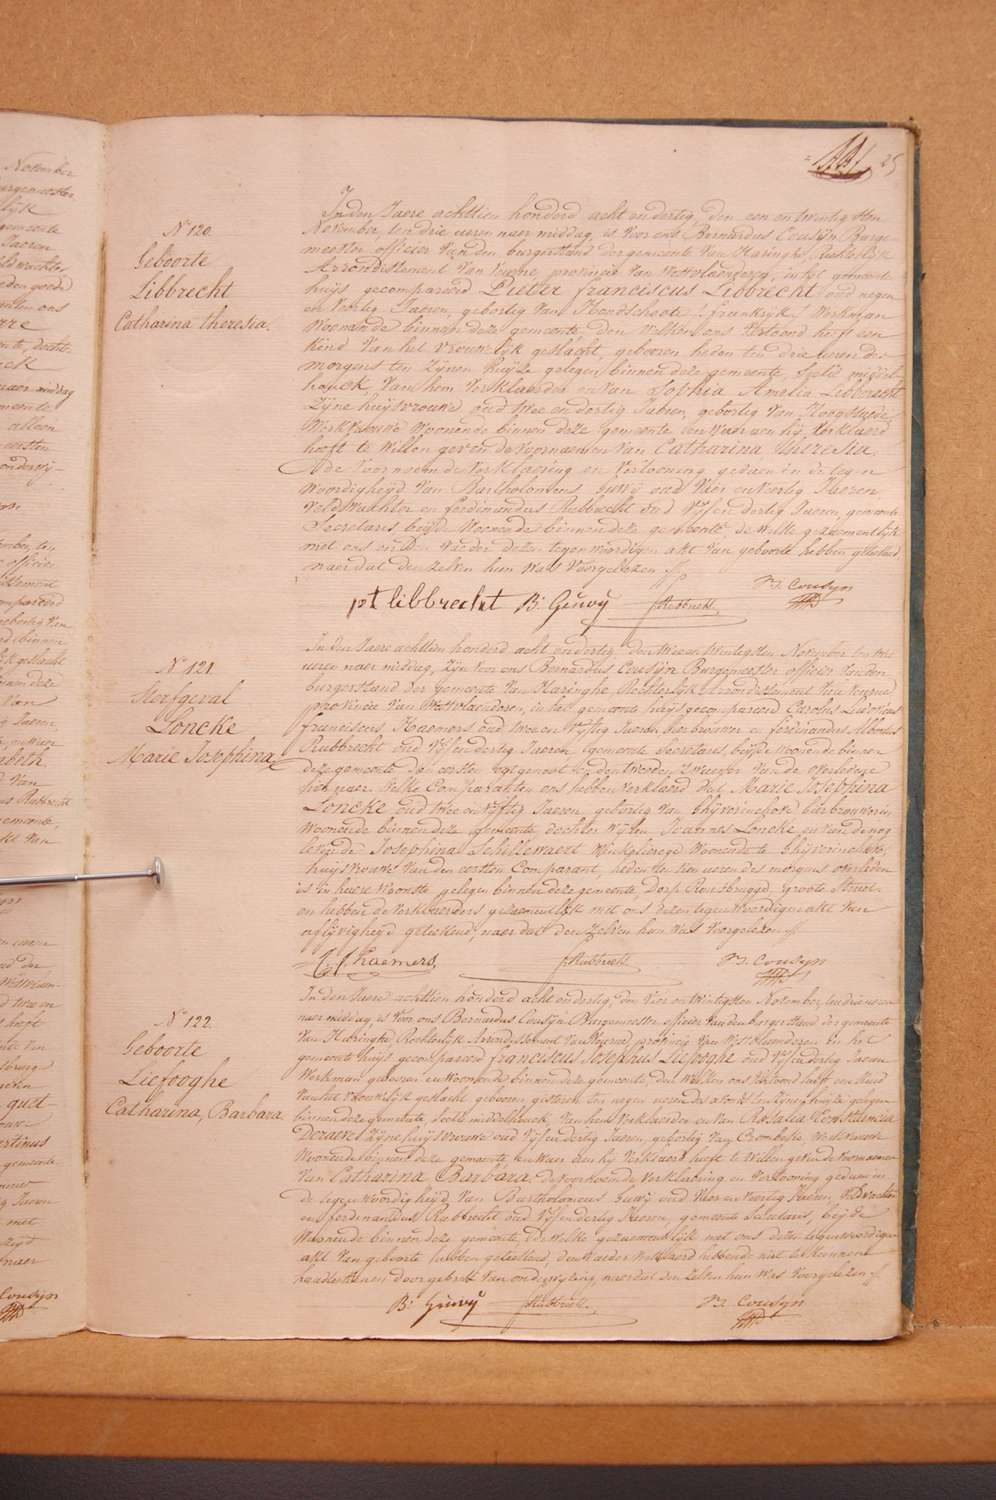 25
N.º 120.
Geboorte
Libbrecht
Catharina theresia.
In den Jaere achttien honderd acht en dertig, den een en twintigsten
November, ten drie ueren naer middag, is voor ons Bernardus Cousijn Burge-
meester officier van den burgerstand der gemeente van Haringhe, Rechterlijk
Arrondissement van veurne, provincie van Westvlaenderen, in het gemeente
huijs gecompareerd Pieter franciscus Libbrecht, oud negen
en veertig Jaeren, geboortig van Hondschoote (frankryk) Werkman
Woonende binnen deze gemeente, den welken ons vertoond heeft een
kind van het vrouwelyk geslacht, geboren heden ten drie ueren des
morgens ten zijnen huijze gelegen binnen deze gemeente, Sectie middel
houck van hem Verklaerder en van Sophia Amelia Libbrecht
Zijne huijsvrouwe, oud twee en dertig Jaeren, geboortig van Hooghlede
Werkvrouwe Woonende binnen deze gemeente en waer aen hij verklaerd
heeft te willen geven de voornaemen van Catharina theresia.
de voornoemde verklaering en vertooning gedaen in de tegen-
woordigheijd van Bartholomeus Guwij oud vier en veertig Jaeren
veldwachter en ferdinandus Rubbrecht oud vijf en dertig Jaeren, gemeente
Secretaris beijde woonende binnen deze gemeente de welke gezaementlijk
met ons en den vader dezen tegenwoordigen akt van geboorte hebben geteekend
naer dat den zelven hun was voorgelezen
pt libbrecht B: Guwy f Rubbrecht B. Cousyn
N.º 121.
Sterfgeval
Loncke
Marie Josephina
In den Jaere achttien honderd acht en dertig, den twee en twintigsten November ten twee
ueren naer middag, zijn voor ons Bernardus Cousijn Burgemeester officier van den
burgerstand der gemeente van Haringhe Rechterlijk Arrondissement van veurne
provincie van Westvlaenderen, in het gemeente huijs gecompareerd Carolus Ludovicus
franciscus Haemers oud twee en vijftig Jaeren bierbrouwer en ferdinandus Albertus
Rubbrecht oud vijf en dertig Jaeren, gemeente secretaris, beijde woonende binnen
deze gemeente, den eersten en den tweeden van de overledene
Welke Comparanten ons hebben verklaerd dat Marie Josephina
Loncke oud twee en vijftig Jaeren, geboortig van Ghyverinchove bierbrouwerin,
Woonende binnen deze gemeente dochter wijlen Joannes Loncke en van de nog
levende Josephina Schillewaert Winkelierege woonende te Ghyverinchove,
huijsvrouwe van den eersten Comparant, heden ten ueren des morgens overleden
is in haere woonste gelegen binnen deze gemeente, dorp Rousbrugge, groote Straet
en hebben de verklaerders gezaementlijk met ons dezen tegenwoordigen akt van
aflijvigheijd geteekend, naer dat den zelven hun was voorgelezen
C. f. haemers f Rubbrecht B. Cousyn
N.º 122.
Geboorte
Liefooghe
Catharina, Barbara
In den Jaere achttien honderd acht en dertig, den vier en twintigsten November, ten drie ueren
naer middag, is voor ons Bernardus Cousijn Burgemeester officier van den burgerstand der gemeente
van Haringhe Rechterlijk Arrondissement van veurne, provincie van Westvlaenderen in het
gemeente huijs gecompareerd franciscus Josephus Liefooghe oud vijf en dertig Jaeren
Werkman geboren en woonende binnen deze gemeente, den welken ons vertoond heeft een kind
van het vrouwelijk geslacht geboren gisteren ten negen ueren des avonds ten zijnen huijze gelegen
binnen deze gemeente, Sectie middelhouck van hem Verklaerder en van Rosalia Constancia
Zijne huijsvrouwe oud vijf en dertig Jaeren, geboortig van Crombeke, Werkvrouwe
Woonende binnen deze gemeente en waer aen hij verklaerd heeft te willen geven de voornaemen
van Catharina Barbara de voornoemde verklaering en vertooning gedaen in
de tegenwoordigheijd van Bartholomeus Guwij oud vier en veertig Jaeren, veldwachter
en ferdinandus Rubbrecht oud vijf en dertig Jaeren, gemeente secretaris, beijde
Woonende binnen deze gemeente, de welke gezaementlijk met ons dezen tegenwoordigen
akt van geboorte hebben geteekend, den vader verklaerd hebbende niet te kunnen
naemteekenen door gebrek van onderwijzing, naer dat den zelven hun was voorgelezen
B: Guwy f Rubbrecht B. Cousyn